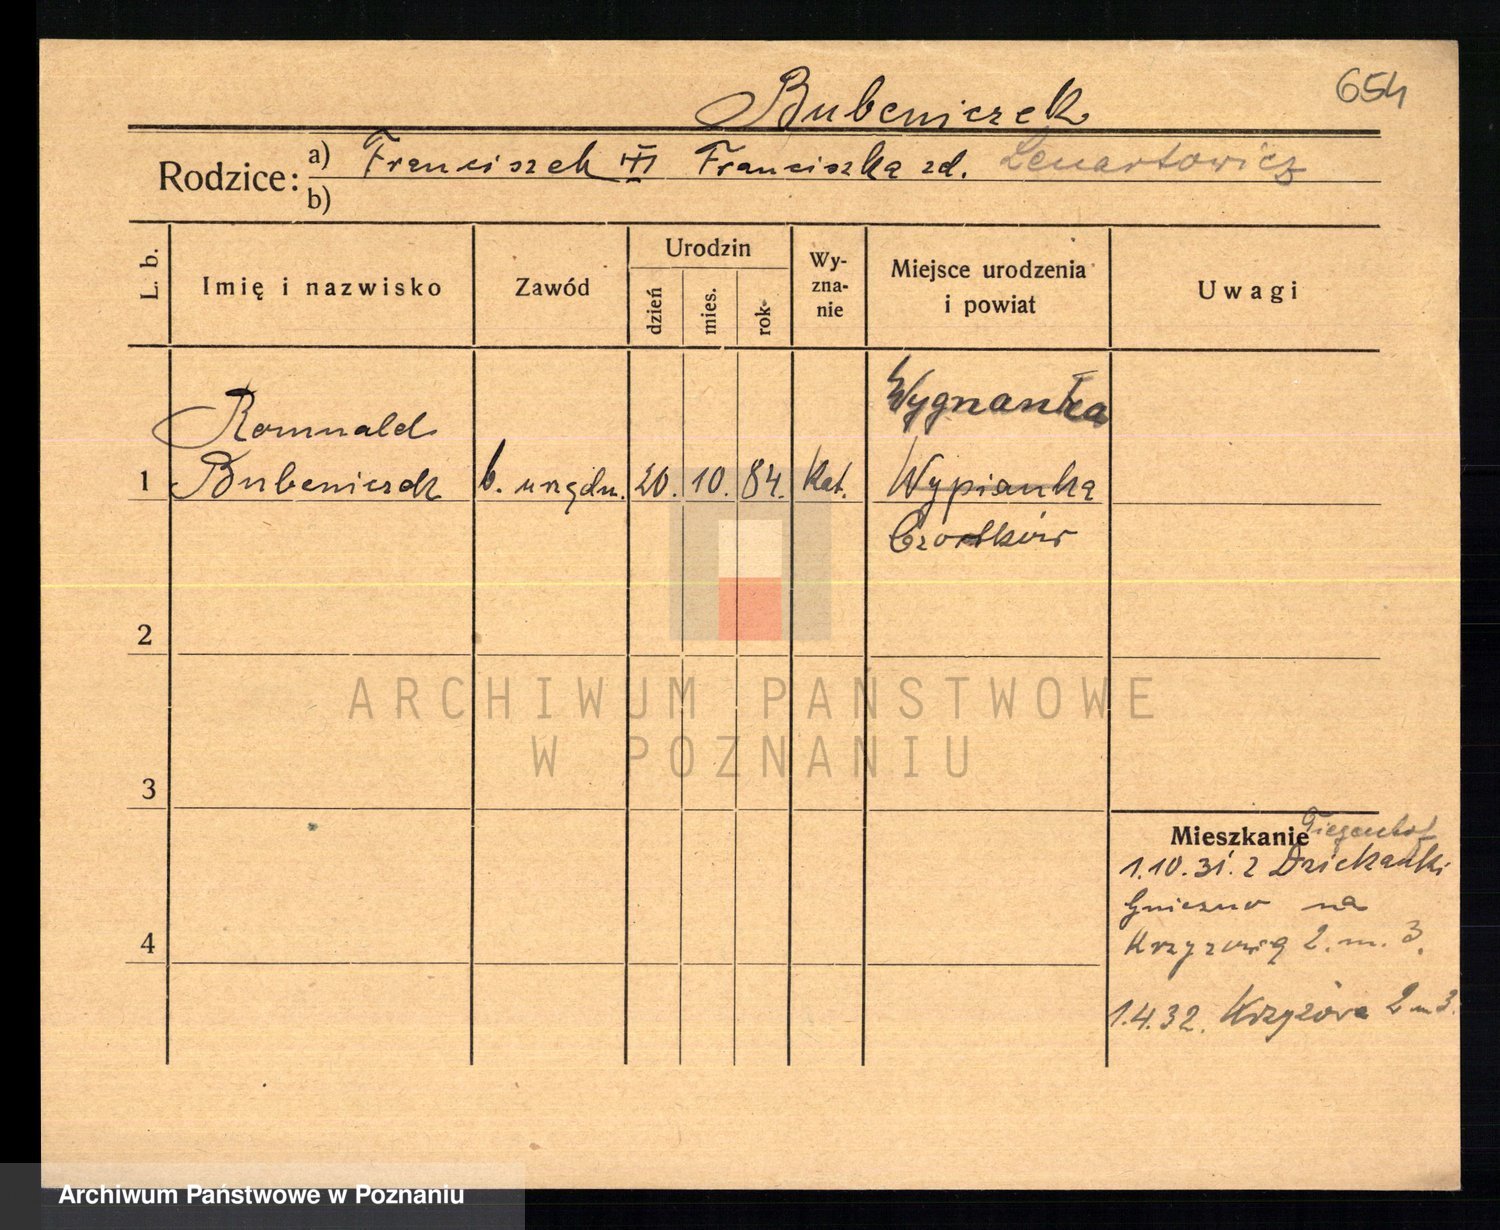 654
Bubeniczek
Rodzice: a) Franciszek III Franciszka zd. Lenartowicz
b)
L. b. Imię i nazwisko Zawód Urodzin dzień mies. rok Wy-zna-nie Miejsce urodzenia i powiat Uwagi
Wygnanka
Romuald
1 Bubeniczek b. urzędn. 20. 10. 84. Kat. Wypianka
Czortków
2
ARCHIWUM PAŃSTWOWE
W POZNANIU
3
Mieszkanie Tiegenhof
1.10.31. z Dziekanki
Gniezno na
Krzyżową 2. m. 3.
4
1.4.32. Krzyżowa 2 m 3.
Archiwum Państwowe w Poznaniu